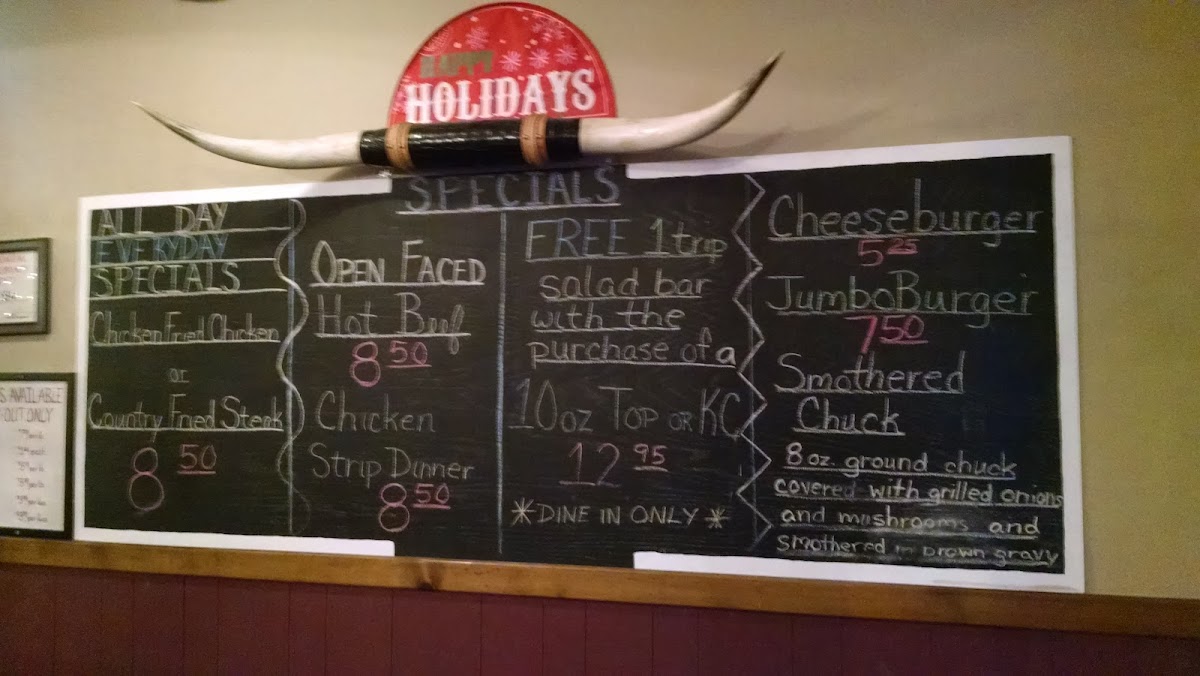 HAPPY
HOLIDAYS
SPECIALS
ALL DAY
EVERYDAY
SPECIALS
Chicken Fried Chicken
or
Country Fried Steak
8 50
OPEN FACED
Hot Beef
8 50
Chicken
Strip Dinner
8 50
FREE 1 trip
salad bar
with the
purchase of a
10 oz TOP OR KC
12 95
*DINE IN ONLY*
Cheeseburger
5 25
Jumbo Burger
7 50
Smothered
Chuck
8 oz. ground chuck
covered with grilled onions
and mushrooms and
smothered in brown gravy
AVAILABLE
OUT ONLY